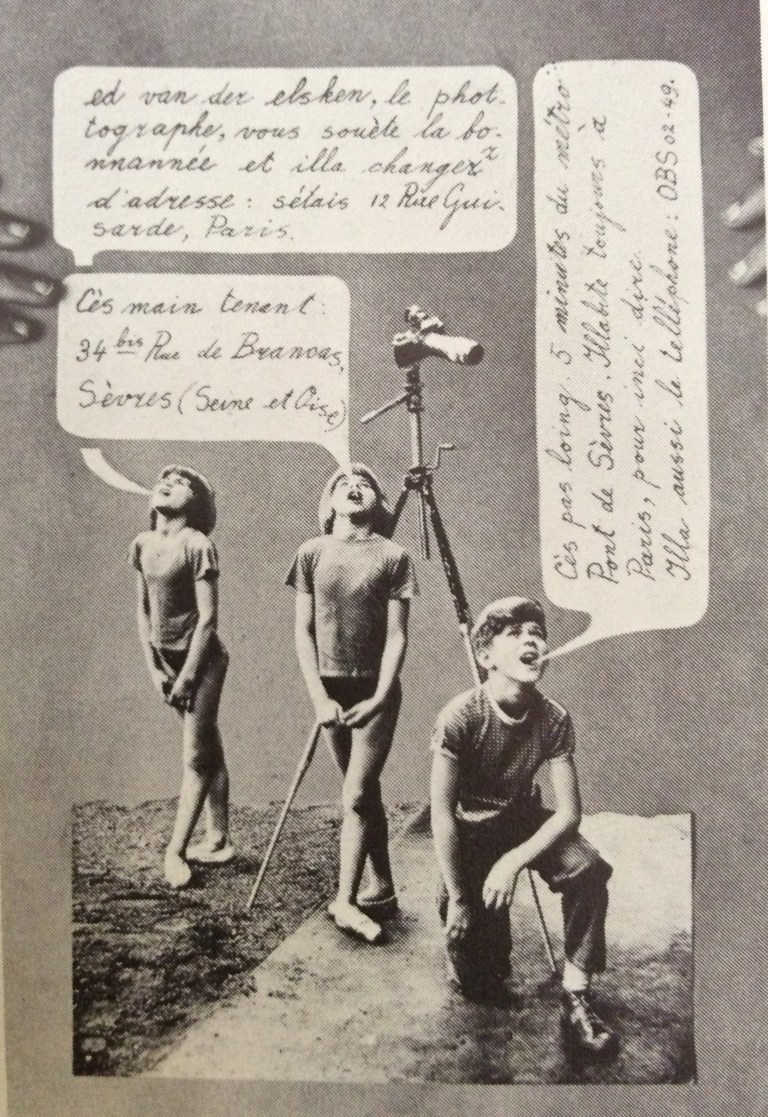 ed van der elsken, le phot-
tographe, vous souète la bo-
nnannée et illa changer²
d'adresse : sétais 12 Rue Gui-
sarde, Paris.
Cès main tenant :
34 bis Rue de Brancas,
Sèvres (Seine et Oise)
Cès pas loing. 5 minutes du métro :
Pont de Sèvres. Illabite toujours à
Paris, pour inci dire.
Illa aussi le telléphone : OBS 02-49.